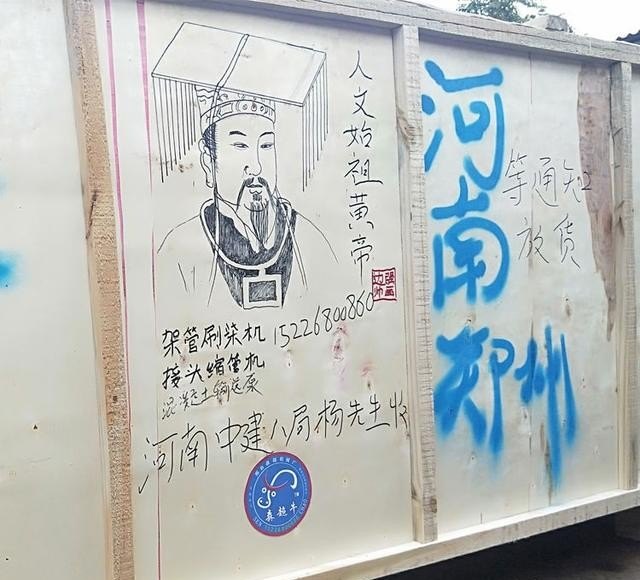 人文始祖黄帝
架管刷柒机
15226800860
接头缩管机
混凝土输送泵
河南中建八局杨先生收
森超牛
河南
郑州
等通知
放货